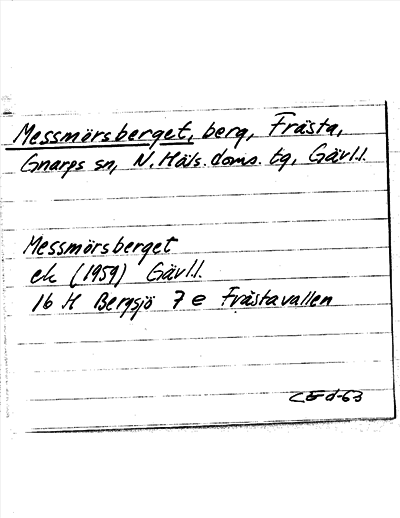 Messmörsberget, berg, Frästa,
Gnarps sn, N. Häls. doms. tg, Gävl.l.
Messmörsberget
ek (1959) Gävl.l.
16 H Bergsjö 7 e Frästavallen